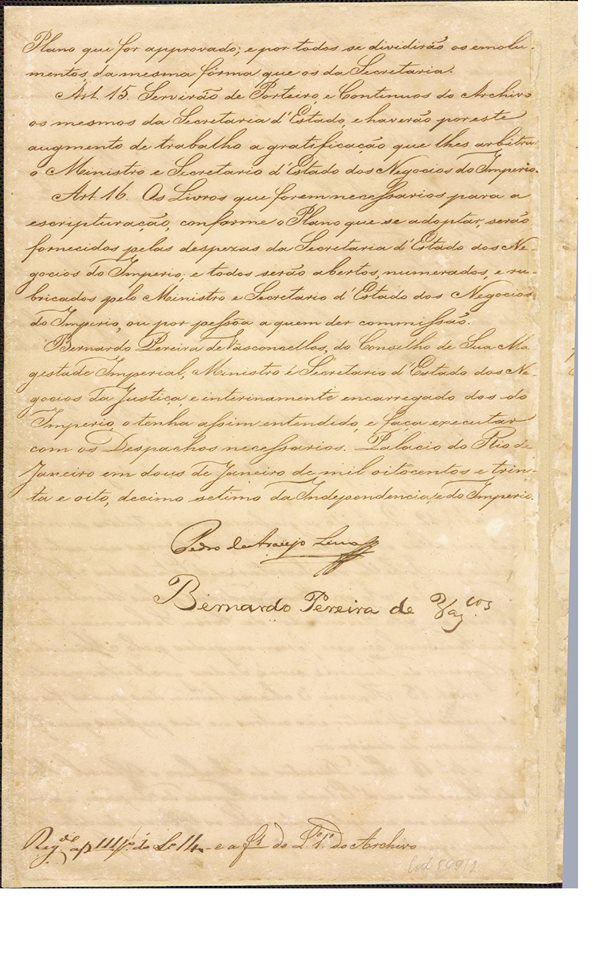 Plano que for approvado; e por todos se dividirão os emolu-
mentos, da mesma fórma que os da Secretaria.
Art. 15. Servirão de Porteiro, e Continuos do Archivo
os mesmos da Secretaria d'Estado, e haverão por este
augmento de trabalho a gratificação que lhes arbitrar
o Ministro e Secretario d'Estado dos Negocios do Imperio.
Art. 16. Os Livros que forem necessarios para a
escripturação, conforme o Plano que se adoptar, serão
fornecidos pelas despezas da Secretaria d'Estado dos Ne-
gocios do Imperio, e todos serão abertos, numerados, e ru-
bricados pelo Ministro e Secretario d'Estado dos Negocios
do Imperio, ou por pessôa a quem der commissão.
Bernardo Pereira de Vasconcellos, do Conselho de Sua Ma-
gestade Imperial, Ministro e Secretario d'Estado dos Ne-
gocios da Justiça, e interinamente encarregado dos do
Imperio o tenha assim entendido, e faça executar
com os Despachos necessarios. Palacio do Rio de
Janeiro em dous de Janeiro de mil oitocentos e trin-
ta e oito, decimo setimo da Independencia, e do Imperio.
Pedro de Araujo Lima
Bernardo Pereira de Vas.cos
Reg.do a f do L e a f do L.o 1.o do Archivo